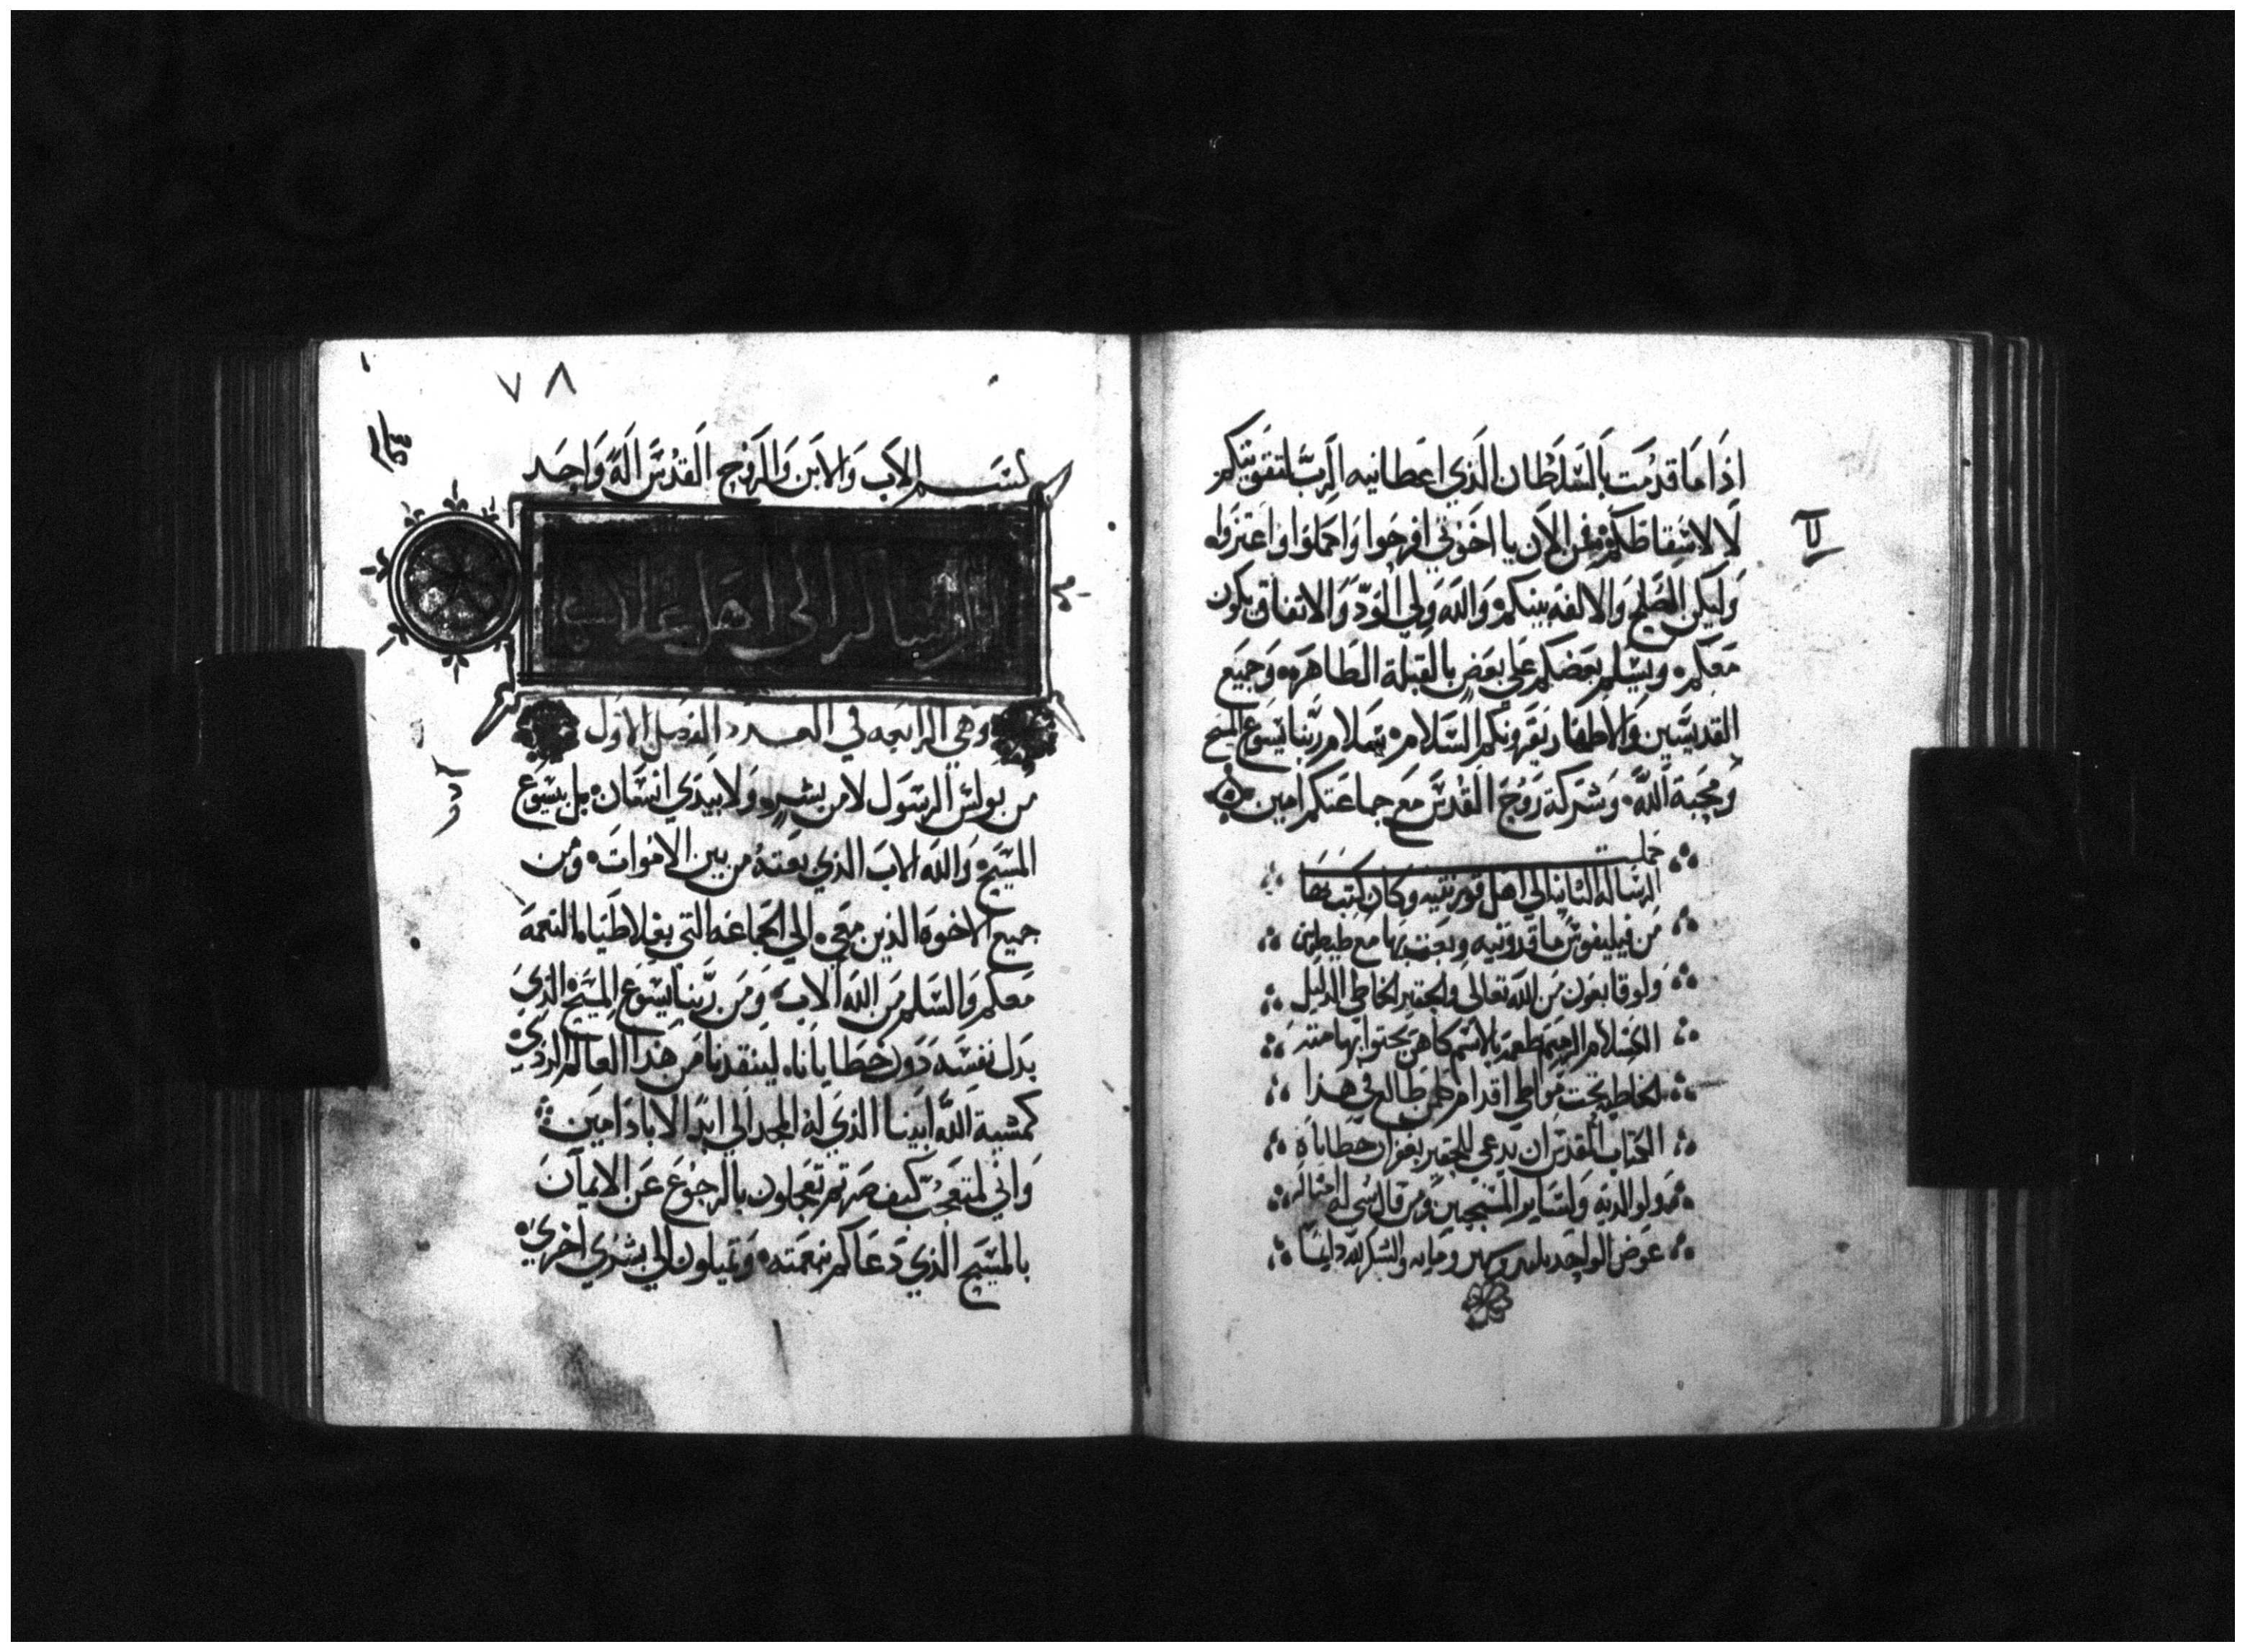 اذا ما قدمت بالسلطان الذي اعطانيه الرب لتقويتكم
لا لاسقاطكم فمن الان يا اخوتي افرحوا واعملوا واعتزوا
وليكن الصلح والالفه بينكم والله ولي الود والاتفاق يكون
معكم وليسلم بعضكم على بعض بالقبلة الطاهره وجميع
القديسين والاطهار يقرونكم السلام سلام ربنا يسوع المسيح
ومحبة الله وشركة روح القدس مع جماعتكم امين
كملت
الرساله الثانيه الي اهل قورنتيه وكان كتب بها
من فيليفوس ماقدونيه وبعث بها مع طيطس
ولوقا بعون من الله تعالى والحقير الخاطي الذليل
بالاسم كاهن
الخاطي تحت مواطي اقدام كلمن طالع في هذا
الكتاب المقدس ان يدعي للحقير بغفران خطاياه
ولوالديه ولساير المسيحيين ومن قال شي له امثاله
عوض الواحد ومايه والشكر لله دايما
٧٨
بسم الاب والابن والروح القدس اله واحد
الرساله الى اهل غلاطيه
وهي الرابعه في العدد الفصل الاول
من بولس الرسول لا من بشر ولا بيدي انسان بل بيسوع
المسيح والله الاب الذي بعثه من بين الاموات ومن
جميع الاخوه الذين معي الي الجماعه التي بغلاطيا النعمة
معكم والسلم من الله الاب ومن ربنا يسوع المسيح الذي
بدل نفسه دون خطايانا لينقدنا من هذا العالم الردي
كمشية الله ابينا الذي له المجد الي ابد الاباد امين
واني لمتعجب كيف صرتم تعجلون بالرجوع عن الايمان
بالمسيح الذي دعاكم بنعمته وتميلون الي بشري اخري